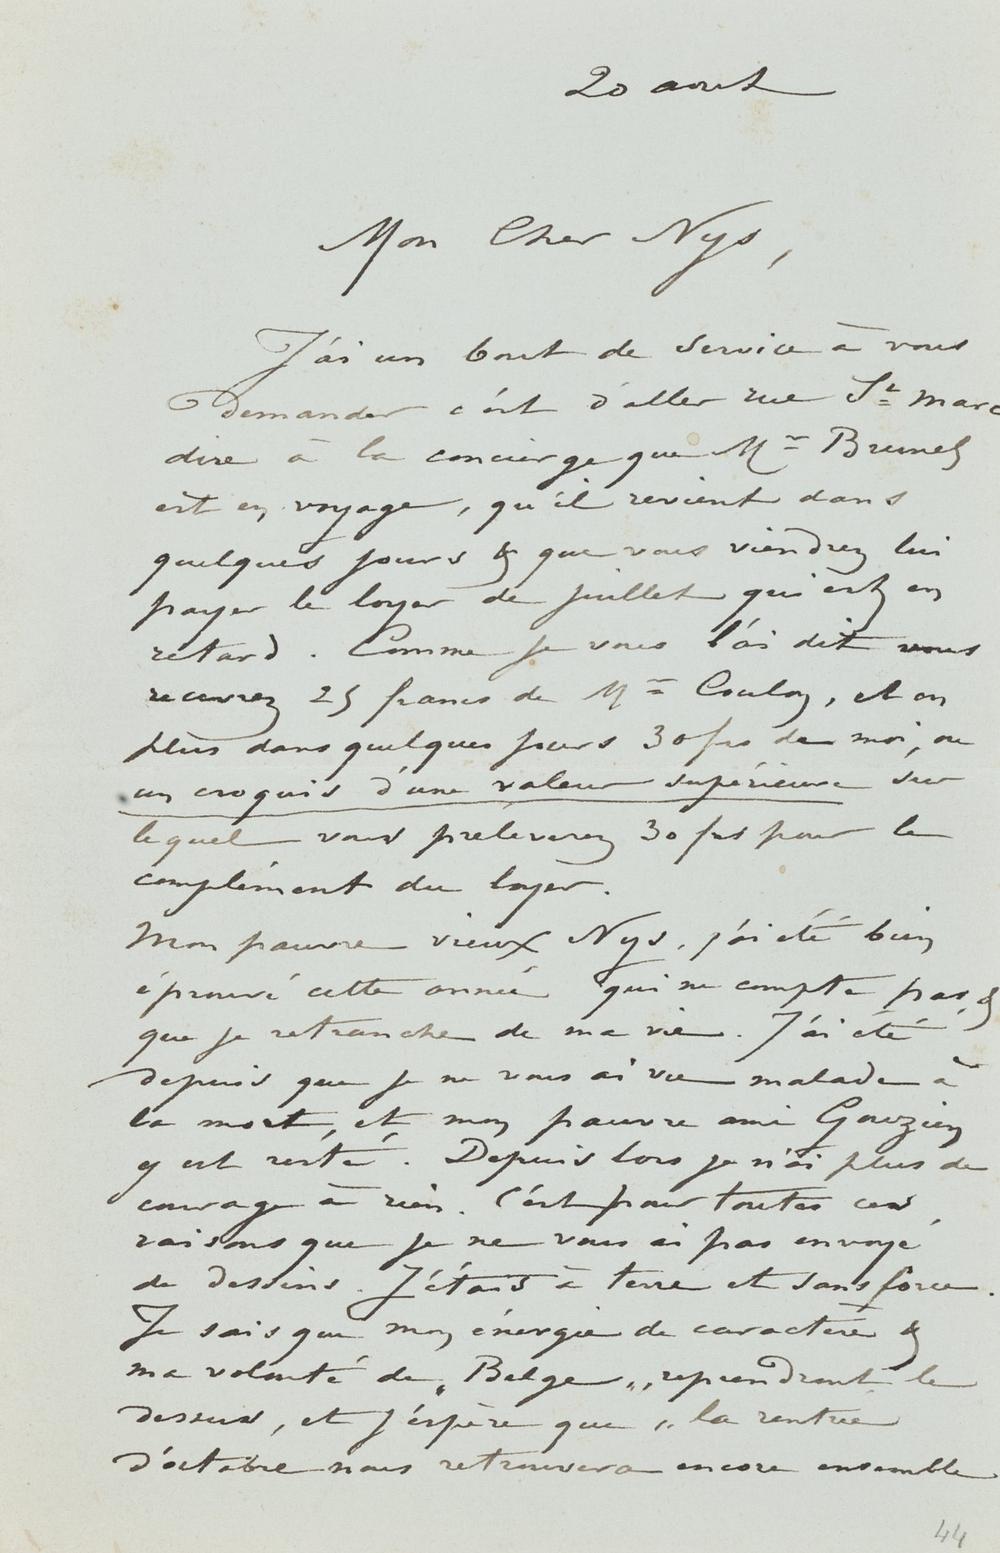 20 aout
Mon Cher Nys,
J'ai un bout de service à vous
Demander c'est d'aller rue St Marc
dire à la concierge que Mr Brunel
est en voyage, qu'il revient dans
quelques jours & que vous viendrez lui
payer le loyer de juillet qui est en
retard. Comme je vous l'ai dit vous
recevrez 25 francs de Mr Coulon, et en
plus dans quelques jours 30 frs de moi, ou
un croquis d'une valeur supérieure sur
lequel vous preleverez 30 frs pour le
complément du loyer.
Mon pauvre vieux Nys, j'ai été bien
éprouvé cette année qui ne compte pas, &
que je retranche de ma vie. J'ai été
depuis que je ne vous ai vu malade à
la mort, et mon pauvre ami Gouzien
y est resté. Depuis lors je n'ai plus de
courage à rien. C'est pour toutes ces
raisons que je ne vous ai pas envoyé
de dessins. J'étais à terre et sans force.
Je sais que mon énergie de caractère &
ma volonté de „Belge„, reprendront le
dessus, et j'espère que „ la rentrée
d'octobre nous retrouvera encore ensemble
44